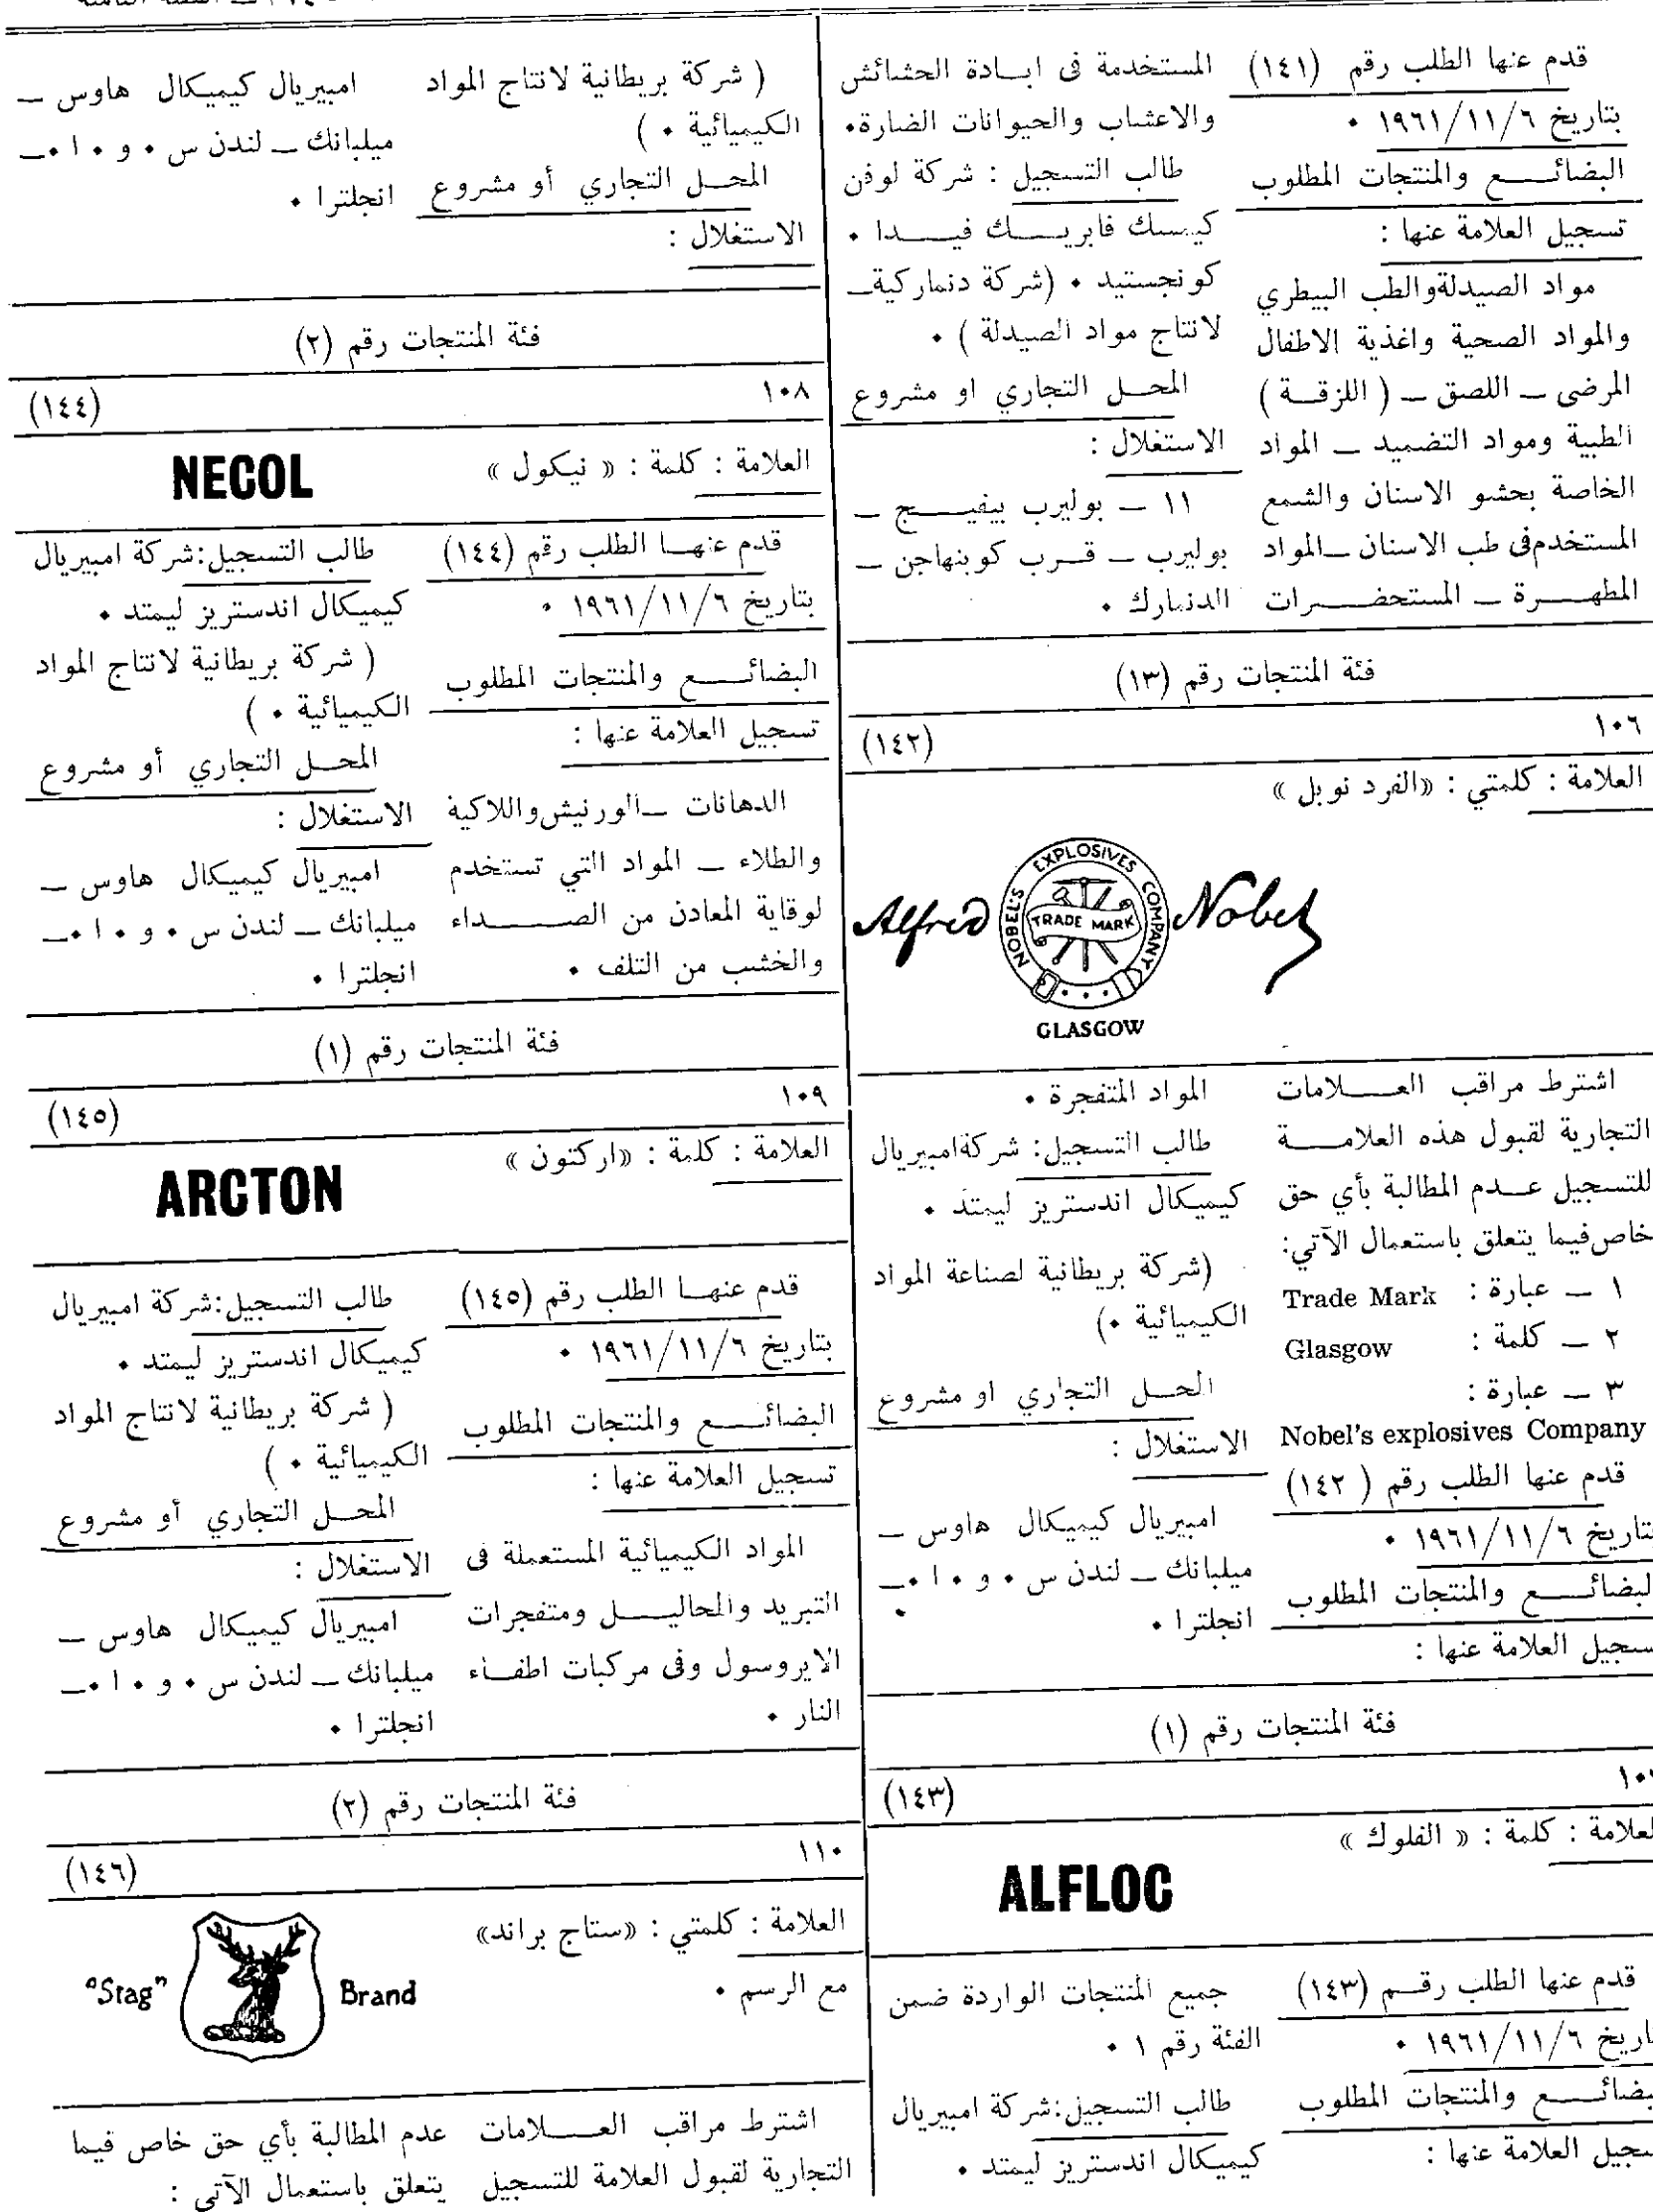 قدم عنها الطلب رقم (١٤١)
بتاريخ ١٩٦١/١١/٦ .
البضائع والمنتجات المطلوب
تسجيل العلامة عنها :
مواد الصيدلة والطب البيطري
والمواد الصحية واغذية الاطفال
المرضى ــ اللصق ــ ( اللزقة )
الطبية ومواد التضميد ــ المواد
الخاصة بحشو الاسنان والشمع
المستخدم فى طب الاسنان ــ المواد
المطهرة ــ المستحضرات
المستخدمة فى ابادة الحشائش
والاعشاب والحيوانات الضارة .
طالب التسجيل : شركة لوفن
كيمسك فابريك فيدا .
كونجستيد . (شركة دنماركية ــ
لانتاج مواد الصيدلة ) .
المحل التجاري او مشروع
الاستغلال :
١١ ــ بوليرب بيفيج ــ
بوليرب ــ قرب كوبنهاجن ــ
الدنمارك .
فئة المنتجات رقم (١٣)
١٠٦
(١٤٢)
العلامة : كلمتي : «الفرد نوبل »
Alfred Nobel
NOBEL'S EXPLOSIVES COMPANY
TRADE MARK
GLASGOW
اشترط مراقب العلامات
التجارية لقبول هذه العلامة
للتسجيل عدم المطالبة بأي حق
خاص فيما يتعلق باستعمال الآتي:
١ ــ عبارة : Trade Mark
٢ ــ كلمة : Glasgow
٣ ــ عبارة :
Nobel's explosives Company
قدم عنها الطلب رقم ( ١٤٢)
بتاريخ ١٩٦١/١١/٦ .
البضائع والمنتجات المطلوب
تسجيل العلامة عنها :
المواد المتفجرة .
طالب التسجيل: شركة امبيريال
كيميكال اندستريز ليمتد .
(شركة بريطانية لصناعة المواد
الكيميائية .)
المحل التجاري او مشروع
الاستغلال :
امبيريال كيميكال هاوس ــ
ميلبانك ــ لندن س . و . ا . ــ
انجلترا .
فئة المنتجات رقم (١)
(١٤٣)
العلامة : كلمة : « الفلوك »
ALFLOC
قدم عنها الطلب رقم (١٤٣)
بتاريخ ١٩٦١/١١/٦ .
البضائع والمنتجات المطلوب
تسجيل العلامة عنها :
جميع المنتجات الواردة ضمن
الفئة رقم ١ .
طالب التسجيل: شركة امبيريال
كيميكال اندستريز ليمتد .
( شركة بريطانية لانتاج المواد
الكيميائية . )
المحل التجاري أو مشروع
الاستغلال :
امبيريال كيميكال هاوس ــ
ميلبانك ــ لندن س . و . ا . ــ
انجلترا .
فئة المنتجات رقم (٢)
١٠٨
(١٤٤)
العلامة : كلمة : « نيكول »
NECOL
قدم عنها الطلب رقم (١٤٤)
بتاريخ ١٩٦١/١١/٦ .
البضائع والمنتجات المطلوب
تسجيل العلامة عنها :
الدهانات ــ الورنيش واللاكية
والطلاء ــ المواد التي تستخدم
لوقاية المعادن من الصداء
والخشب من التلف .
طالب التسجيل: شركة امبيريال
كيميكال اندستريز ليمتد .
( شركة بريطانية لانتاج المواد
الكيميائية . )
المحل التجاري أو مشروع
الاستغلال :
امبيريال كيميكال هاوس ــ
ميلبانك ــ لندن س . و . ا . ــ
انجلترا .
فئة المنتجات رقم (١)
١٠٩
(١٤٥)
العلامة : كلمة : «اركتون »
ARCTON
قدم عنها الطلب رقم (١٤٥)
بتاريخ ١٩٦١/١١/٦ .
البضائع والمنتجات المطلوب
تسجيل العلامة عنها :
المواد الكيميائية المستعملة فى
التبريد والمحاليل ومتفجرات
الايروسول وفى مركبات اطفاء
النار .
طالب التسجيل: شركة امبيريال
كيميكال اندستريز ليمتد .
( شركة بريطانية لانتاج المواد
الكيميائية . )
المحل التجاري أو مشروع
الاستغلال :
امبيريال كيميكال هاوس ــ
ميلبانك ــ لندن س . و . ا . ــ
انجلترا .
فئة المنتجات رقم (٢)
١١٠
(١٤٦)
العلامة : كلمتي : «ستاج براند»
مع الرسم .
"Stag" Brand
اشترط مراقب العلامات
التجارية لقبول العلامة للتسجيل
عدم المطالبة بأي حق خاص فيما
يتعلق باستعمال الآتي :